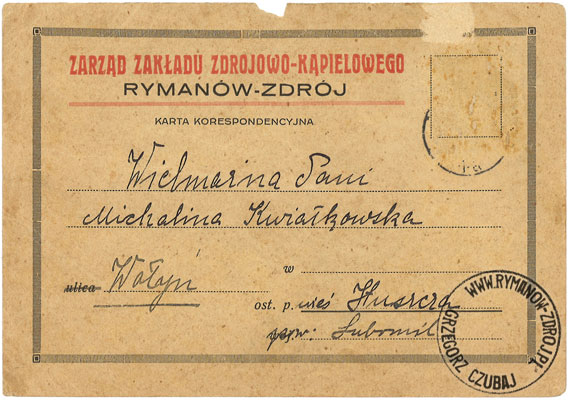 ZARZĄD ZAKŁADU ZDROJOWO-KĄPIELOWEGO
RYMANÓW-ZDRÓJ
KARTA KORESPONDENCYJNA
Wielmożna Pani
Michalina Kwiatkowska
ulica Wołyń
w
ost. p. wieś Huszcza
pow. Lubomil
WWW.RYMANOW-ZDROJ.PL
GRZEGORZ CZUBAJ